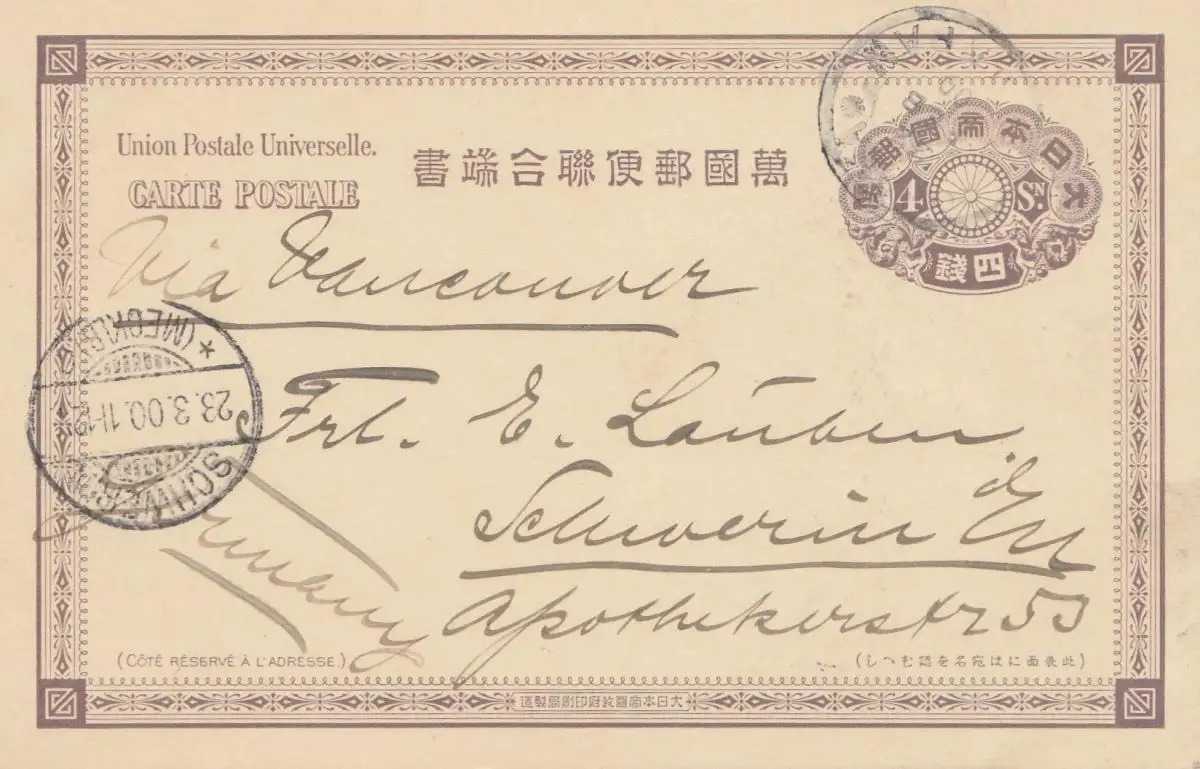 Union Postale Universelle.
CARTE POSTALE
萬國郵便聯合端書
大日本帝國郵便
4 SN.
四錢
Via Vancouver
Frl. E. Lauben
Schwerin i/M
Apothekerstr 53
Germany
SCHWERIN
23.3.00. 11-12
* (MECKLB)
(CÔTÉ RÉSERVÉ À L'ADRESSE.)
(此表面には宛名を認むへし)
大日本帝國政府印刷局製造